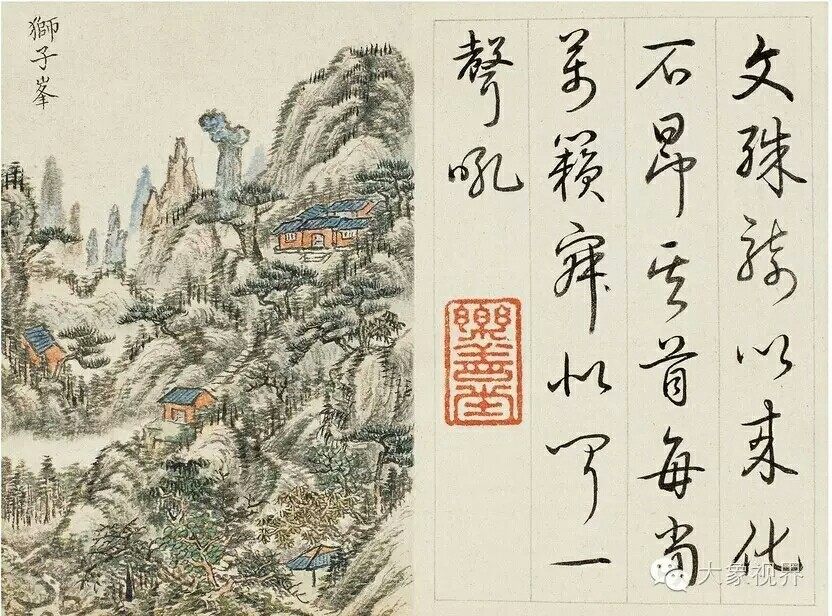 獅子峯
文殊騎以來化
石昂其首每當
萬籟寂似聞一
聲吼
樂善堂
大象视界